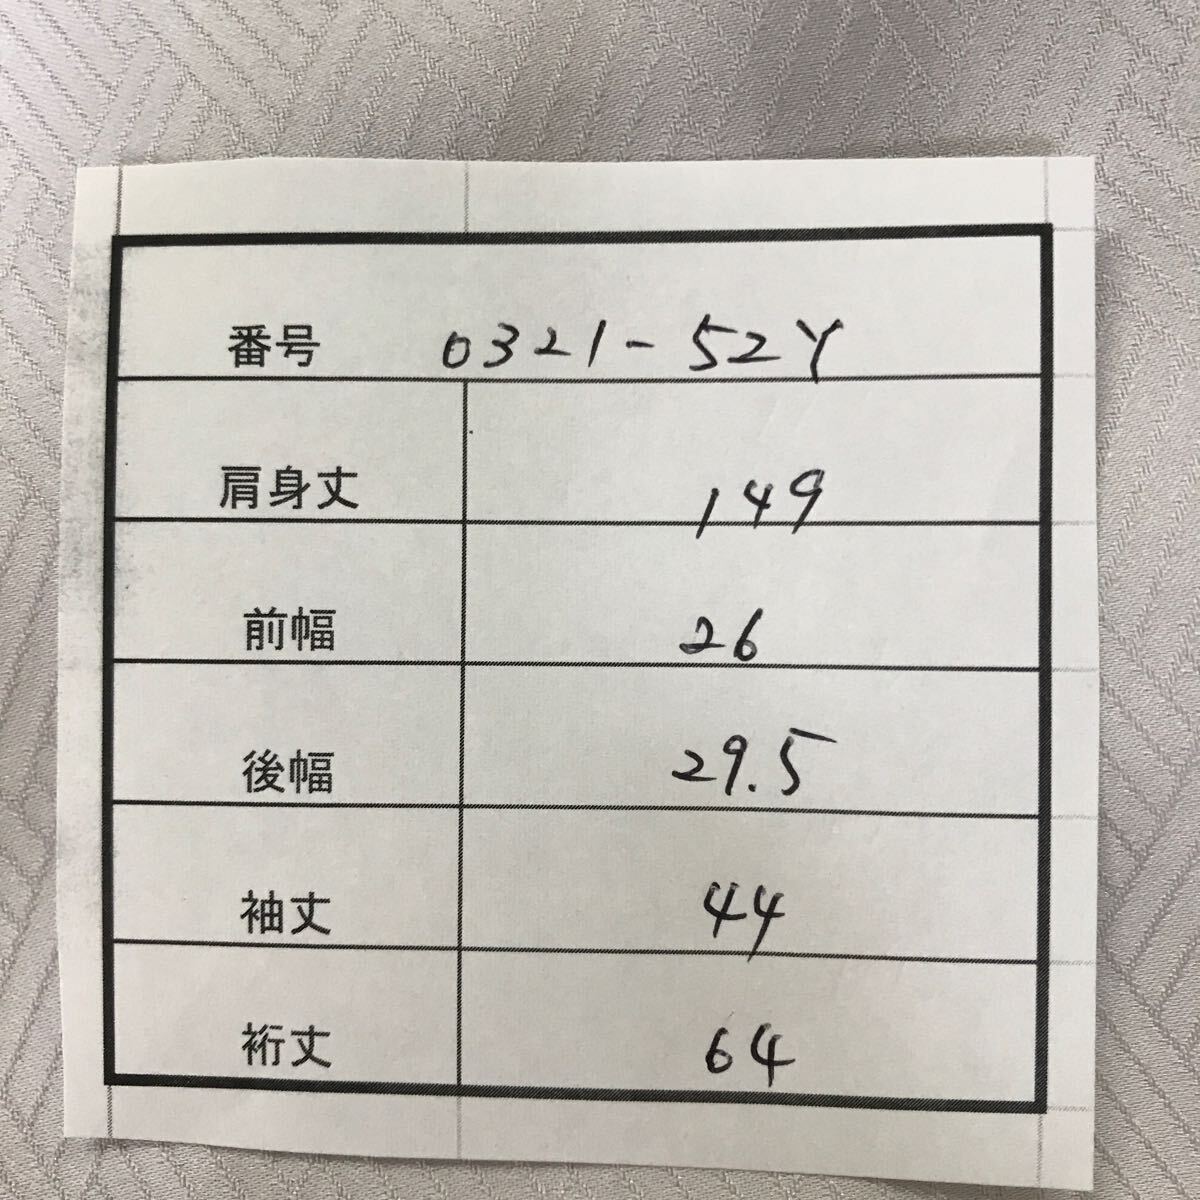 番号 0321-52Y
肩身丈 149
前幅 26
後幅 29.5
袖丈 44
裄丈 64